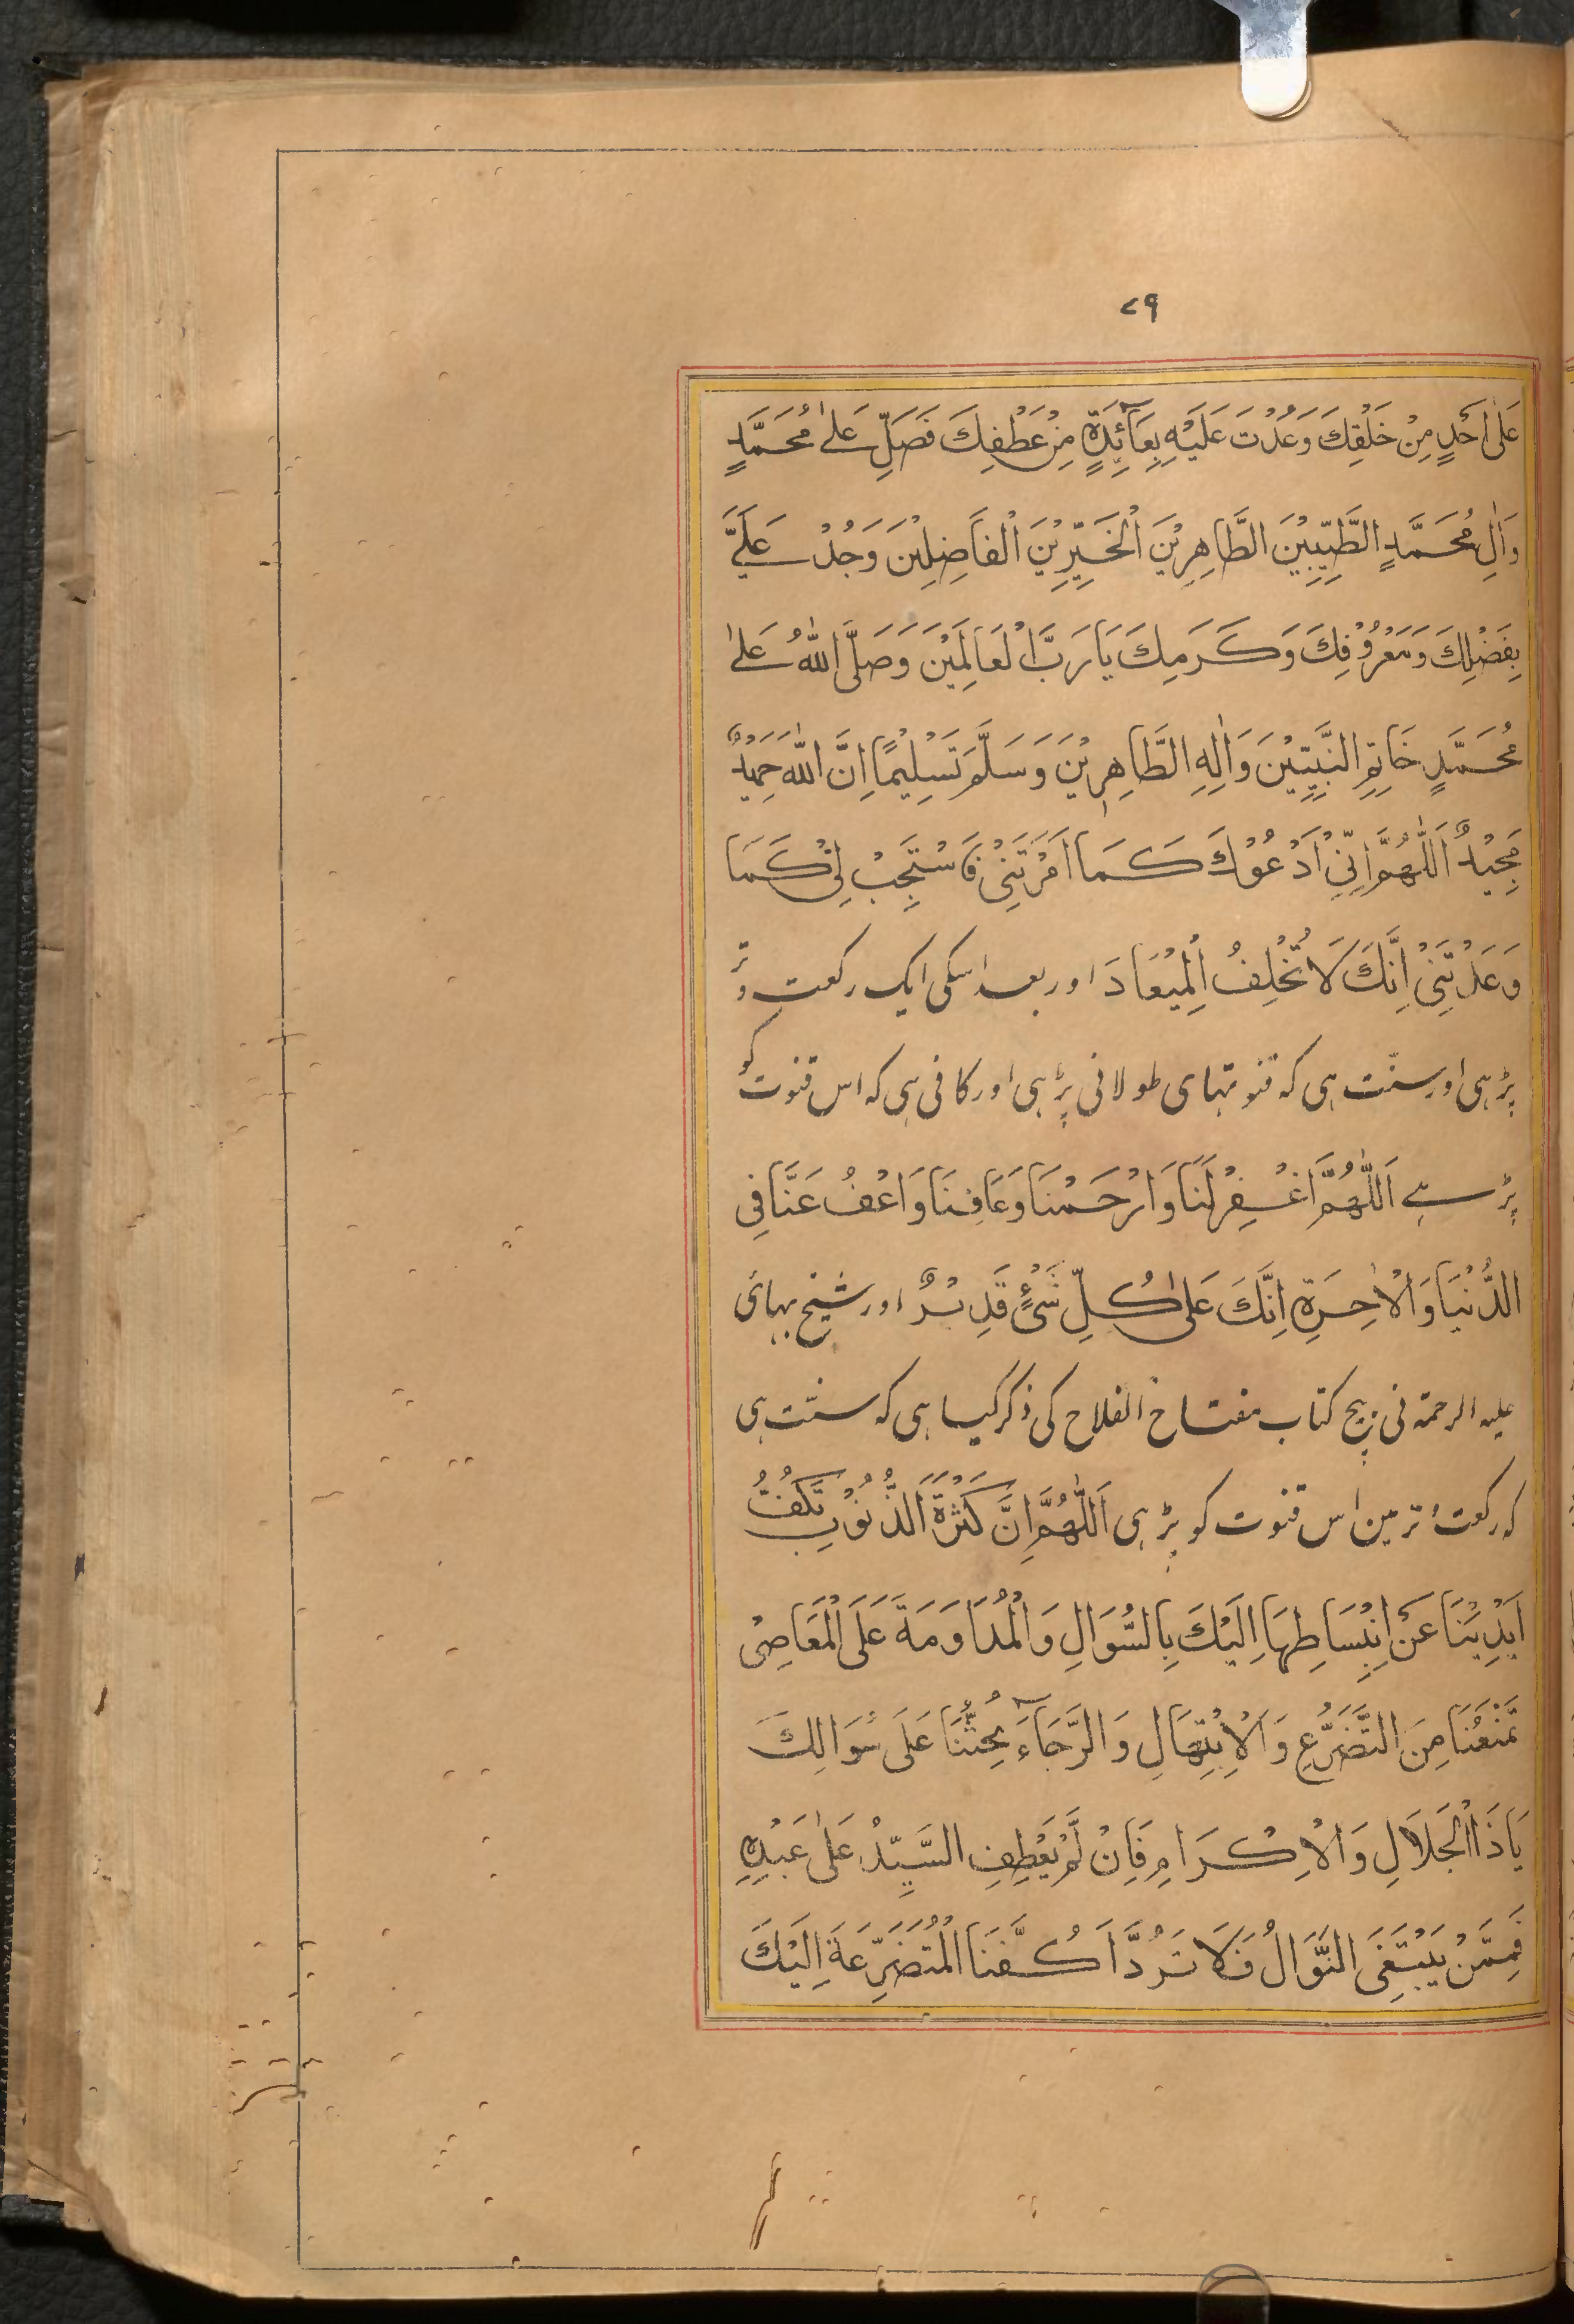 ۷۹
عَلٰى اَحَدٍ مِنْ خَلْقِكَ وَعُدْتَ عَلَيْهِ بِعَآئِدَةٍ مِنْ عَطْفِكَ فَصَلِّ عَلٰى مُحَمَّدٍ
وَاٰلِ مُحَمَّدٍ الطَّيِّبِيْنَ الطَّاهِرِيْنَ الْخَيِّرِيْنَ الْفَاضِلِيْنَ وَجُدْ عَلَيَّ
بِفَضْلِكَ وَمَعْرُوْفِكَ وَكَرَمِكَ يَا رَبَّ الْعَالَمِيْنَ وَصَلَّى اللّٰهُ عَلٰى
مُحَمَّدٍ خَاتِمِ النَّبِيِّيْنَ وَاٰلِهِ الطَّاهِرِيْنَ وَسَلَّمَ تَسْلِيْمًا اِنَّ اللّٰهَ حَمِيْدٌ
مَجِيْدٌ اَللّٰهُمَّ اِنِّيْ اَدْعُوْكَ كَمَا اَمَرْتَنِيْ فَاسْتَجِبْ لِيْ كَمَا
وَعَدْتَنِيْ اِنَّكَ لَا تُخْلِفُ الْمِيْعَادَ اور بعد اسکی ایک رکعت وتر
پڑہی اور سنّت ہی کہ قنوتہای طولانی پڑہی اور کافی ہی کہ اس قنوت کو
پڑہے اَللّٰهُمَّ اغْفِرْلَنَا وَارْحَمْنَا وَعَافِنَا وَاعْفُ عَنَّا فِي
الدُّنْيَا وَالْاٰخِرَةِ اِنَّكَ عَلٰى كُلِّ شَىْءٍ قَدِيْرٌ اور شیخ بہائی
علیہ الرحمۃ نی بیچ کتاب مفتاح الفلاح کی ذکر کیا ہی کہ سنّت ہی
کہ رکعت وتر مین اس قنوت کو پڑہی اَللّٰهُمَّ اِنَّ كَثْرَةَ الذُّنُوْبِ تَكُفُّ
اَيْدِيَنَا عَنْ اِنْبِسَاطِهَا اِلَيْكَ بِالسُّوَالِ وَالْمُدَاوَمَةَ عَلَى الْمَعَاصِيْ
تَمْنَعُنَا مِنَ التَّضَرُّعِ وَالْاِبْتِهَالِ وَالرَّجَآءَ يَحُثُّنَا عَلَى سُوَالِكَ
يَا ذَا الْجَلَالِ وَالْاِكْرَامِ فَاِنْ لَمْ يَعْطِفِ السَّيِّدُ عَلٰى عَبْدِهِ
فَمِمَّنْ يَبْتَغَى النَّوَالُ فَلَا تَرُدَّ اَكُفَّنَا الْمُتَضَرِّعَةَ اِلَيْكَ